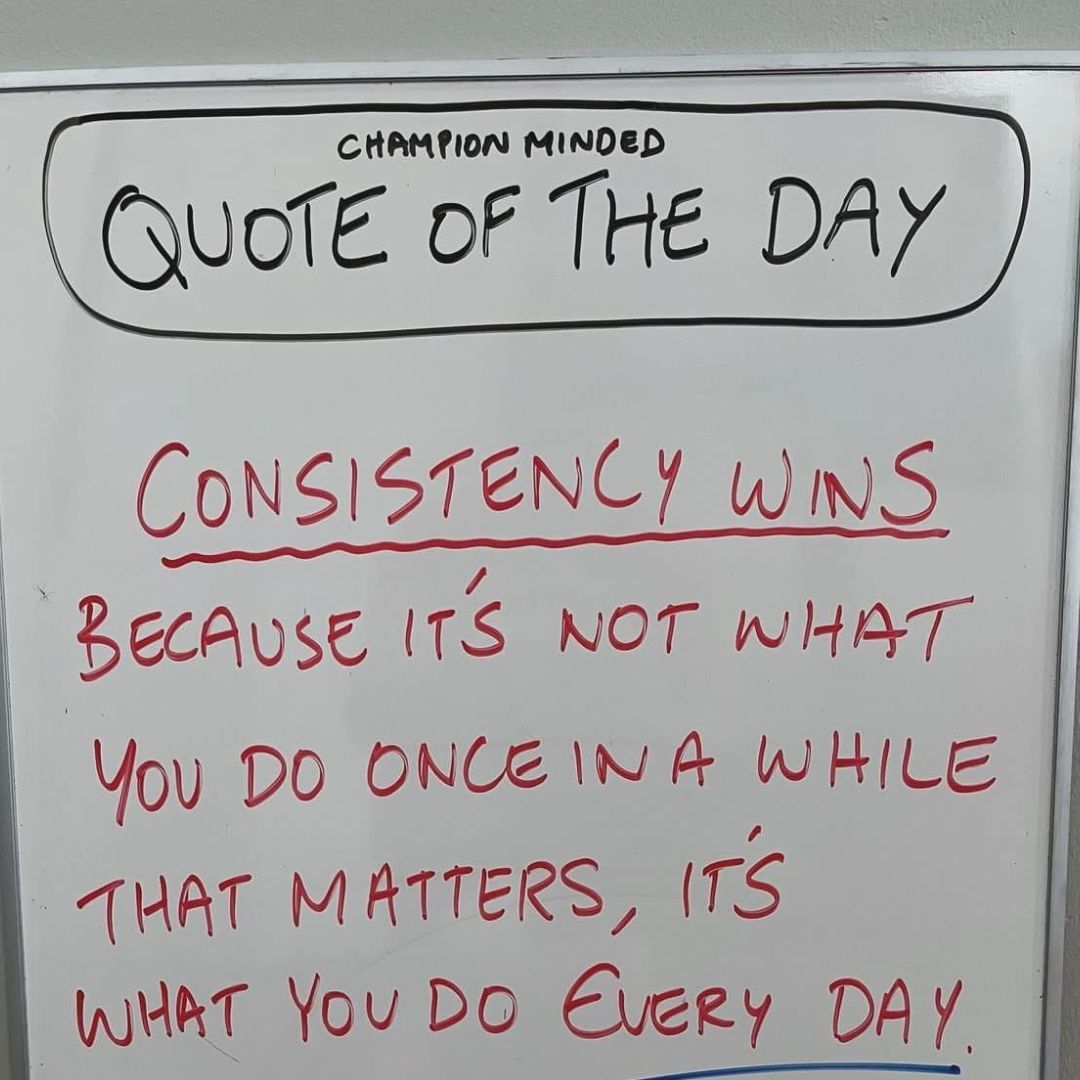 CHAMPION MINDED
QUOTE OF THE DAY
CONSISTENCY WINS
BECAUSE IT'S NOT WHAT
YOU DO ONCE IN A WHILE
THAT MATTERS, IT'S
WHAT YOU DO EVERY DAY.